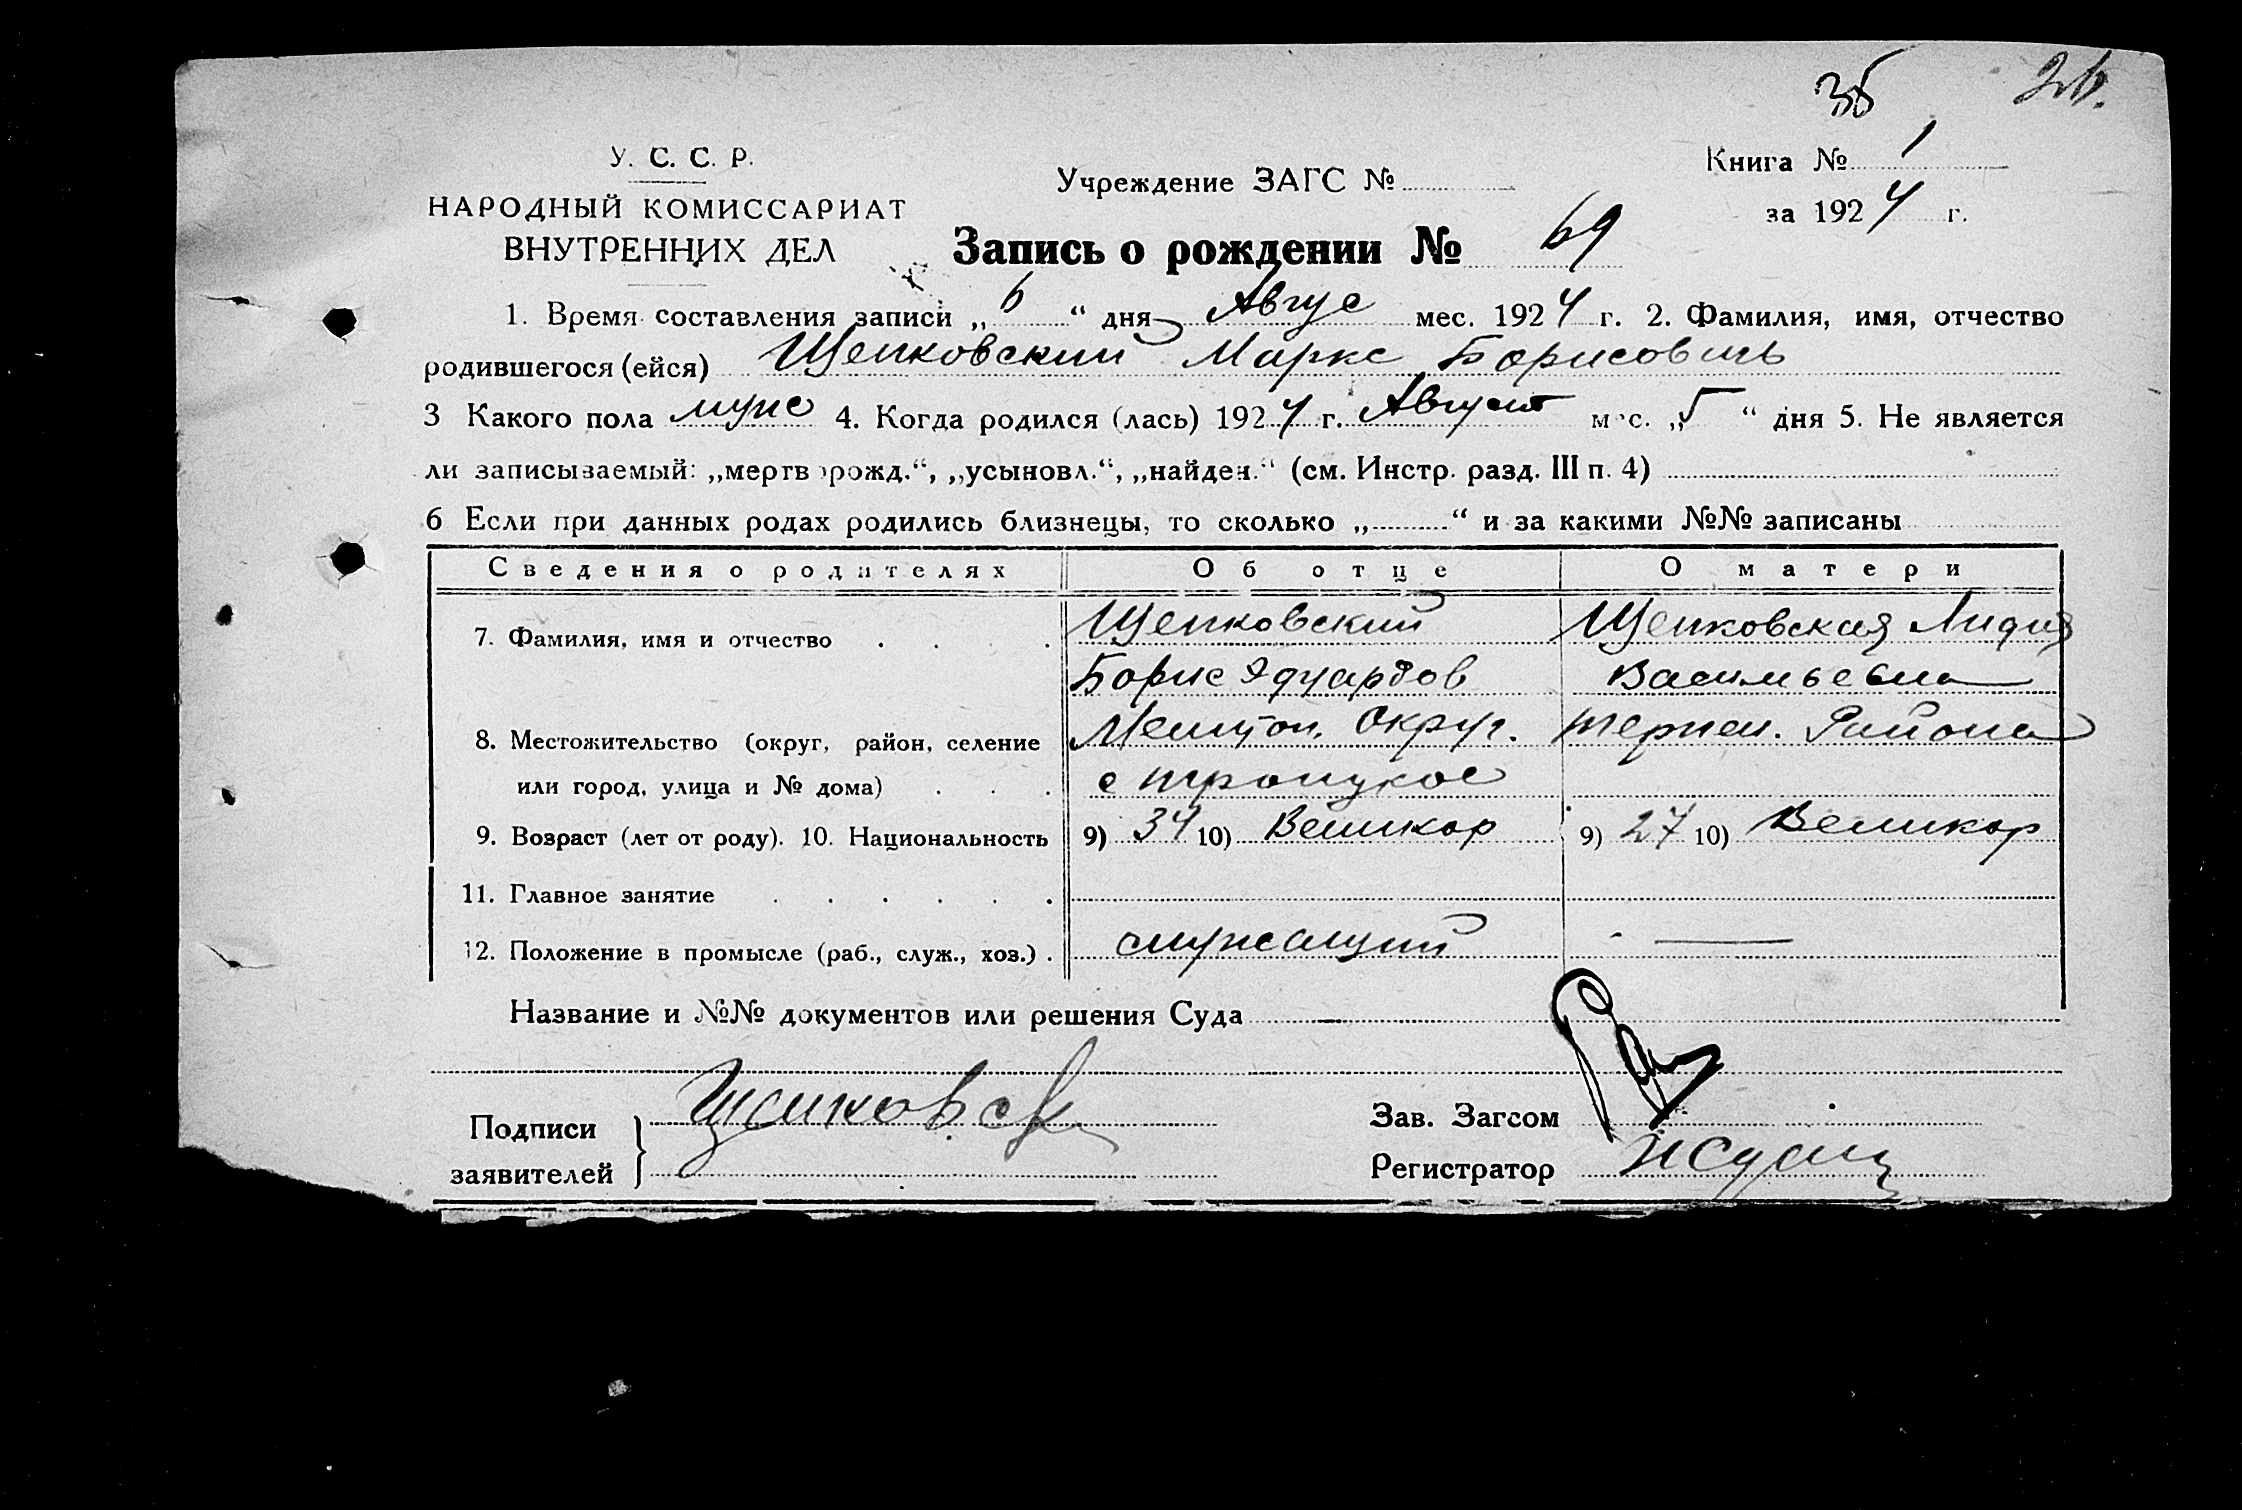 35 26.
У. С. С. Р.
НАРОДНЫЙ КОМИССАРИАТ
ВНУТРЕННИХ ДЕЛ
Учреждение ЗАГС №
Книга № 1
за 1924 г.
Запись о рождении № 69
1. Время составления записи „ 6 “ дня Авгус мес. 1924 г. 2. Фамилия, имя, отчество
родившегося (ейся) Щепковский Маркс Борисовичь
3 Какого пола муже 4. Когда родился (лась) 1924 г. Август мес. „5“ дня 5. Не является
ли записываемый: „мертворожд.“, „усыновл.“, „найден.“ (см. Инстр. разд. III п. 4)
6 Если при данных родах родились близнецы, то сколько „ “ и за какими №№ записаны
Сведения о родителях Об отце О матери
7. Фамилия, имя и отчество . . . . Щепковский Щепковская Лидия
Борис Эдуардов Васильевна
8. Местожительство (округ, район, селение Мелитоп. Округ. Терпен. Района
или город, улица и № дома) . . . с Троицкое
9. Возраст (лет от роду). 10. Национальность 9) 34 10) Великор 9) 27 10) Великор
11. Главное занятие . . . . . .
12. Положение в промысле (раб., служ., хоз.) . служащий
Название и №№ документов или решения Суда
Подписи
заявителей
Щепковск
Зав. Загсом
Регистратор